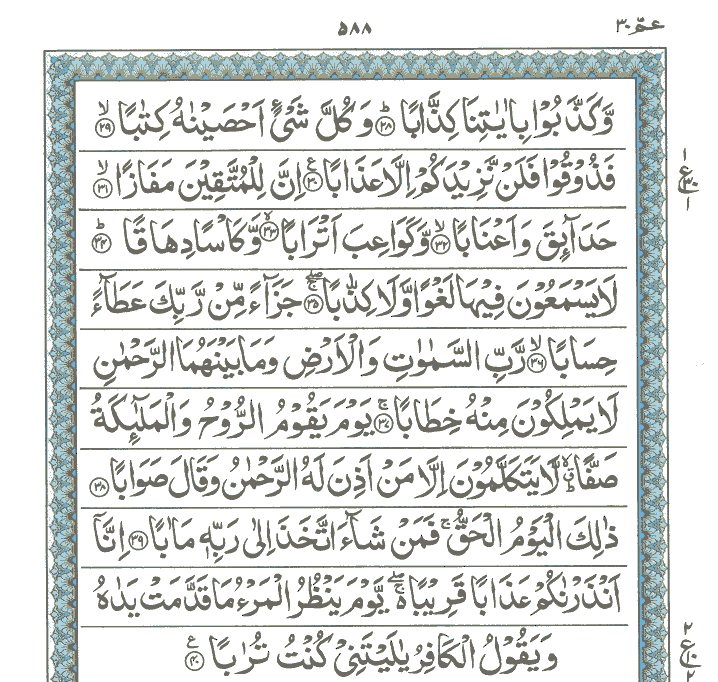 عمّ ۳۰
۵۸۸
وَّكَذَّبُوْا بِاٰيٰتِنَا كِذَّابًا ؕ﴿۲۸﴾ وَ كُلَّ شَیْءٍ اَحْصَيْنٰهُ كِتٰبًا ۙ﴿۲۹﴾
فَذُوْقُوْا فَلَنْ نَّزِيْدَكُمْ اِلَّا عَذَابًا ﴿۳۰﴾ ع اِنَّ لِلْمُتَّقِيْنَ مَفَازًا ۙ﴿۳۱﴾
۱ ع ۳۰ ۱
حَدَآئِقَ وَ اَعْنَابًا ۙ﴿۳۲﴾ وَّكَوَاعِبَ اَتْرَابًا ۙ﴿۳۳﴾ وَّكَاْسًا دِهَاقًا ؕ﴿۳۴﴾
لَا يَسْمَعُوْنَ فِيْهَا لَغْوًا وَّلَا كِذّٰبًا ۚۖ﴿۳۵﴾ جَزَآءً مِّنْ رَّبِّكَ عَطَآءً
حِسَابًا ۙ﴿۳۶﴾ رَّبِّ السَّمٰوٰتِ وَالْاَرْضِ وَمَا بَيْنَهُمَا الرَّحْمٰنِ
لَا يَمْلِكُوْنَ مِنْهُ خِطَابًا ۚ﴿۳۷﴾ يَوْمَ يَقُوْمُ الرُّوْحُ وَالْمَلٰٓئِكَةُ
صَفًّا ؕۙ لَّا يَتَكَلَّمُوْنَ اِلَّا مَنْ اَذِنَ لَهُ الرَّحْمٰنُ وَقَالَ صَوَابًا ﴿۳۸﴾
ذٰلِكَ الْيَوْمُ الْحَقُّ ۚ فَمَنْ شَآءَ اتَّخَذَ اِلٰى رَبِّهٖ مَاٰبًا ﴿۳۹﴾ اِنَّاۤ
اَنْذَرْنٰكُمْ عَذَابًا قَرِيْبًا ۬ۚۖ يَّوْمَ يَنْظُرُ الْمَرْءُ مَا قَدَّمَتْ يَدٰهُ
وَيَقُوْلُ الْكَافِرُ يٰلَيْتَنِیْ كُنْتُ تُرٰبًا ﴿۴۰﴾ ع
۲ ع ۱۰ ۲